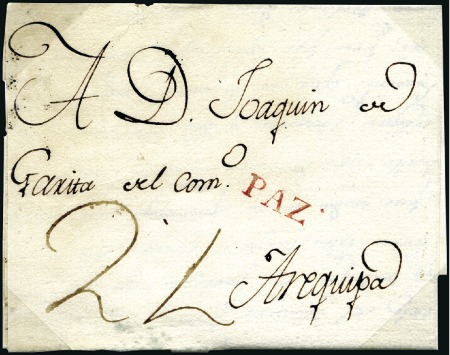 A D. Joaquin de
Garita del Com.º
PAZ.
2 L Arequipa